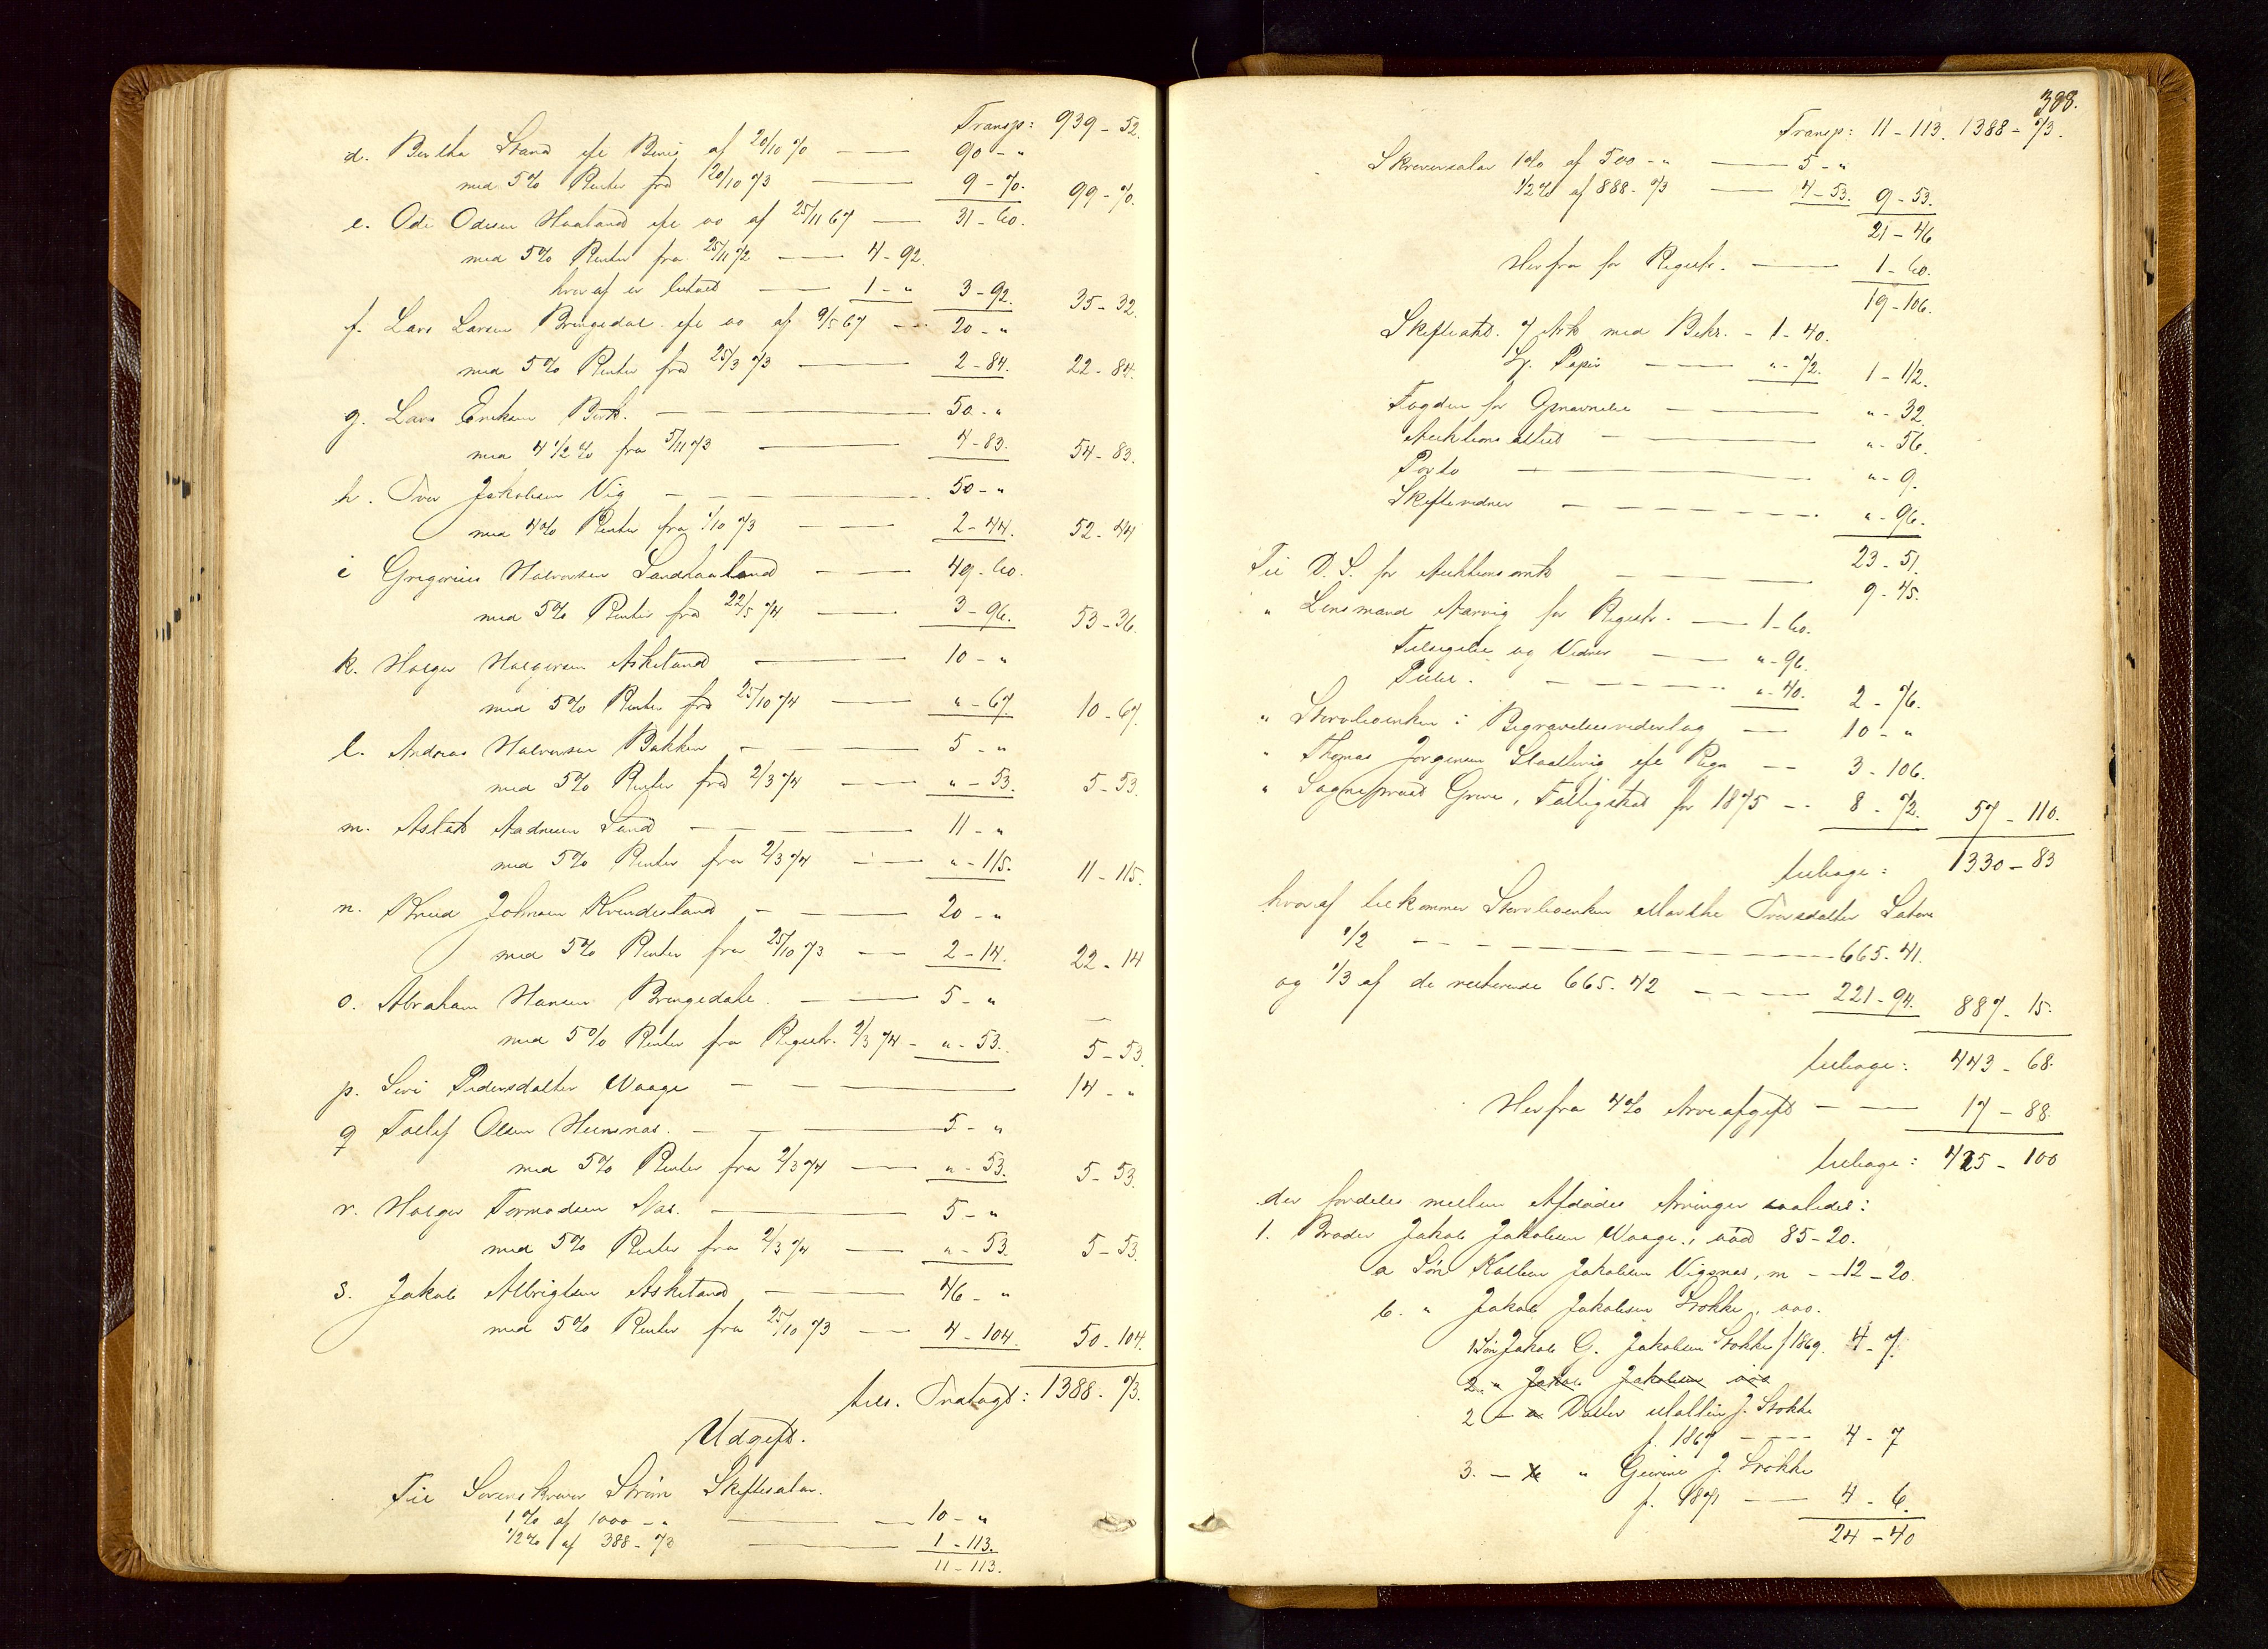 Transp: 939 - 52.
d. Bertha Strand efter Bevis af 20/10 70 — 90 - "
med 5% Renter fra 20/10 73 — 9 - 70. 99 - 70.
e. Ode Odesen Haaland efter do af 25/11 67 — 31 - 60.
med 5% Renter fra 25/11 72 — 4 - 92.
hvoraf er betalt — 1 - " 3 - 92. 35 - 32.
f. Lars Larsen Bringedal efter do af 9/5 67 — 20 - "
med 5% Renter fra 25/3 73 — 2 - 84. 22 - 84.
g. Lars Eriksen Birk. — 50 - "
med 4 1/2 % fra 5/11 73 — 4 - 83. 54 - 83.
h. Iver Jakobsen Vig — 50 - "
med 4% Renter fra 1/10 73 — 2 - 44. 52 - 44
i Gregorius Halvorsen Sandhaaland — 49 - 60.
med 5% Renter fra 22/5 74 — 3 - 96. 53 - 36.
k. Holger Holgersen Askeland — 10 - "
med 5% Renter fra 25/10 74 — " - 67. 10 - 67.
l. Andreas Halvorsen Bakken — 5 - "
med 5% Renter fra 2/3 74 — " - 53. 5 - 53.
m. Aslak Aadnesen Sund — 11 - "
med 5% Renter fra 2/3 74 — " - 115. 11 - 115.
n. Knud Johnsen Kvindesland — 20 - "
med 5% Renter fra 25/10 73 — 2 - 14. 22 - 14
o. Abraham Hansen Bringedale. — 5 - "
med 5% Renter fra Registr. 2/3 74 - " - 53. 5 - 53.
p. Siri Pedersdatter Waage — 14 - "
q Tollef Olsen Hemnes. — 5 - "
med 5% Renter fra 2/3 74 — " - 53. 5 - 53.
r. Holger Tormodsen Næs. — 5 - "
med 5% Renter fra 2/3 74 — " - 53. 5 - 53
s. Jakob Albrigtsen Askeland — 46 - "
med 5% Renter fra 25/10 73 — 4 - 104. 50 - 104.
tils. Indtægt: 1388 - 73.
Udgift.
Til Sorenskriver Strøm Skiftesalær.
1% af 1000 - " — 10 - "
1/2% af 388 - 73 — 1 - 113.
11 - 113.
388.
Transp: 11 - 113. 1388 - 73.
Skriversalær 1% af 500 - " — 5 - "
1/2% af 888 - 73 — 4 - 53. 9 - 53.
21 - 46
Herfra for Registr. — 1 - 60.
19 - 106.
Skifteakt. 7 Ark med Bekr. - 1 - 40.
St. Papir — " - 72. 1 - 112.
Fogden for Opnævnelse — " - 32.
Auktions attest — " - 56.
Porto — " - 9.
Skiftevidner — " - 96.
23 - 51.
Til D. S. for Auktionsomk — 9 - 45.
" Lensmand Aarvig for Registr. — 1 - 60.
Tilsigelse og Vidner — " - 96.
Piller. — " - 40. 2 - 76.
" Stervboenken i Begravelsesvederlag — 10 - "
" Thomas Jørgensen Slaattevig efter Regn — 3 - 106.
" Sogneprest Greve, Fattigskat for 1875 — 8 - 72. 57 - 110.
tilbage: 1330 - 83
hvoraf tilkommer Stervboenken Marthe Iversdatter Satere
1/2 — 665 - 41.
og 1/3 af de resterende 665. 42 — 221 - 94. 887 - 15.
tilbage: 443 - 68.
Herfra 4% Arveafgift — 17 - 88.
tilbage: 425 - 100
der fordeles mellem Afdødes Arvinger saaledes:
1. Broder Jakob Jakobsen Waage, død 85 - 20.
a Søn Kolben Jakobsen Vigsnes, m — 12 - 20.
b. " Jakob Jakobsen Stokke, død.
1 Søn Jakob G. Jakobsen Stokke f 1869. 4 - 7.
2. " Jakob Jakobsen død
2 — a Datter Mallin J. Stokke
f. 1867 — 4 - 7
3. — " Gurine J. Stokke
f. 1871 — 4 - 6.
24 - 40